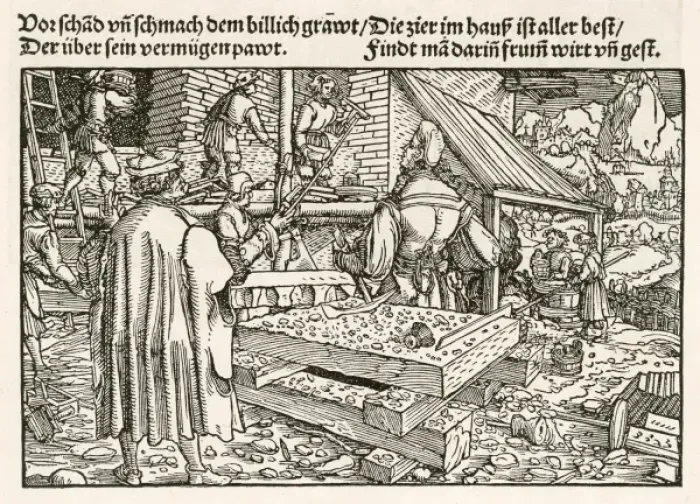 Vor schãd vñ schmach dem billich grãwt/
Der über sein vermügen pawt.
Die zier im hauß ist aller best/
Findt mã dariñ frum̃ wirt vñ gest.